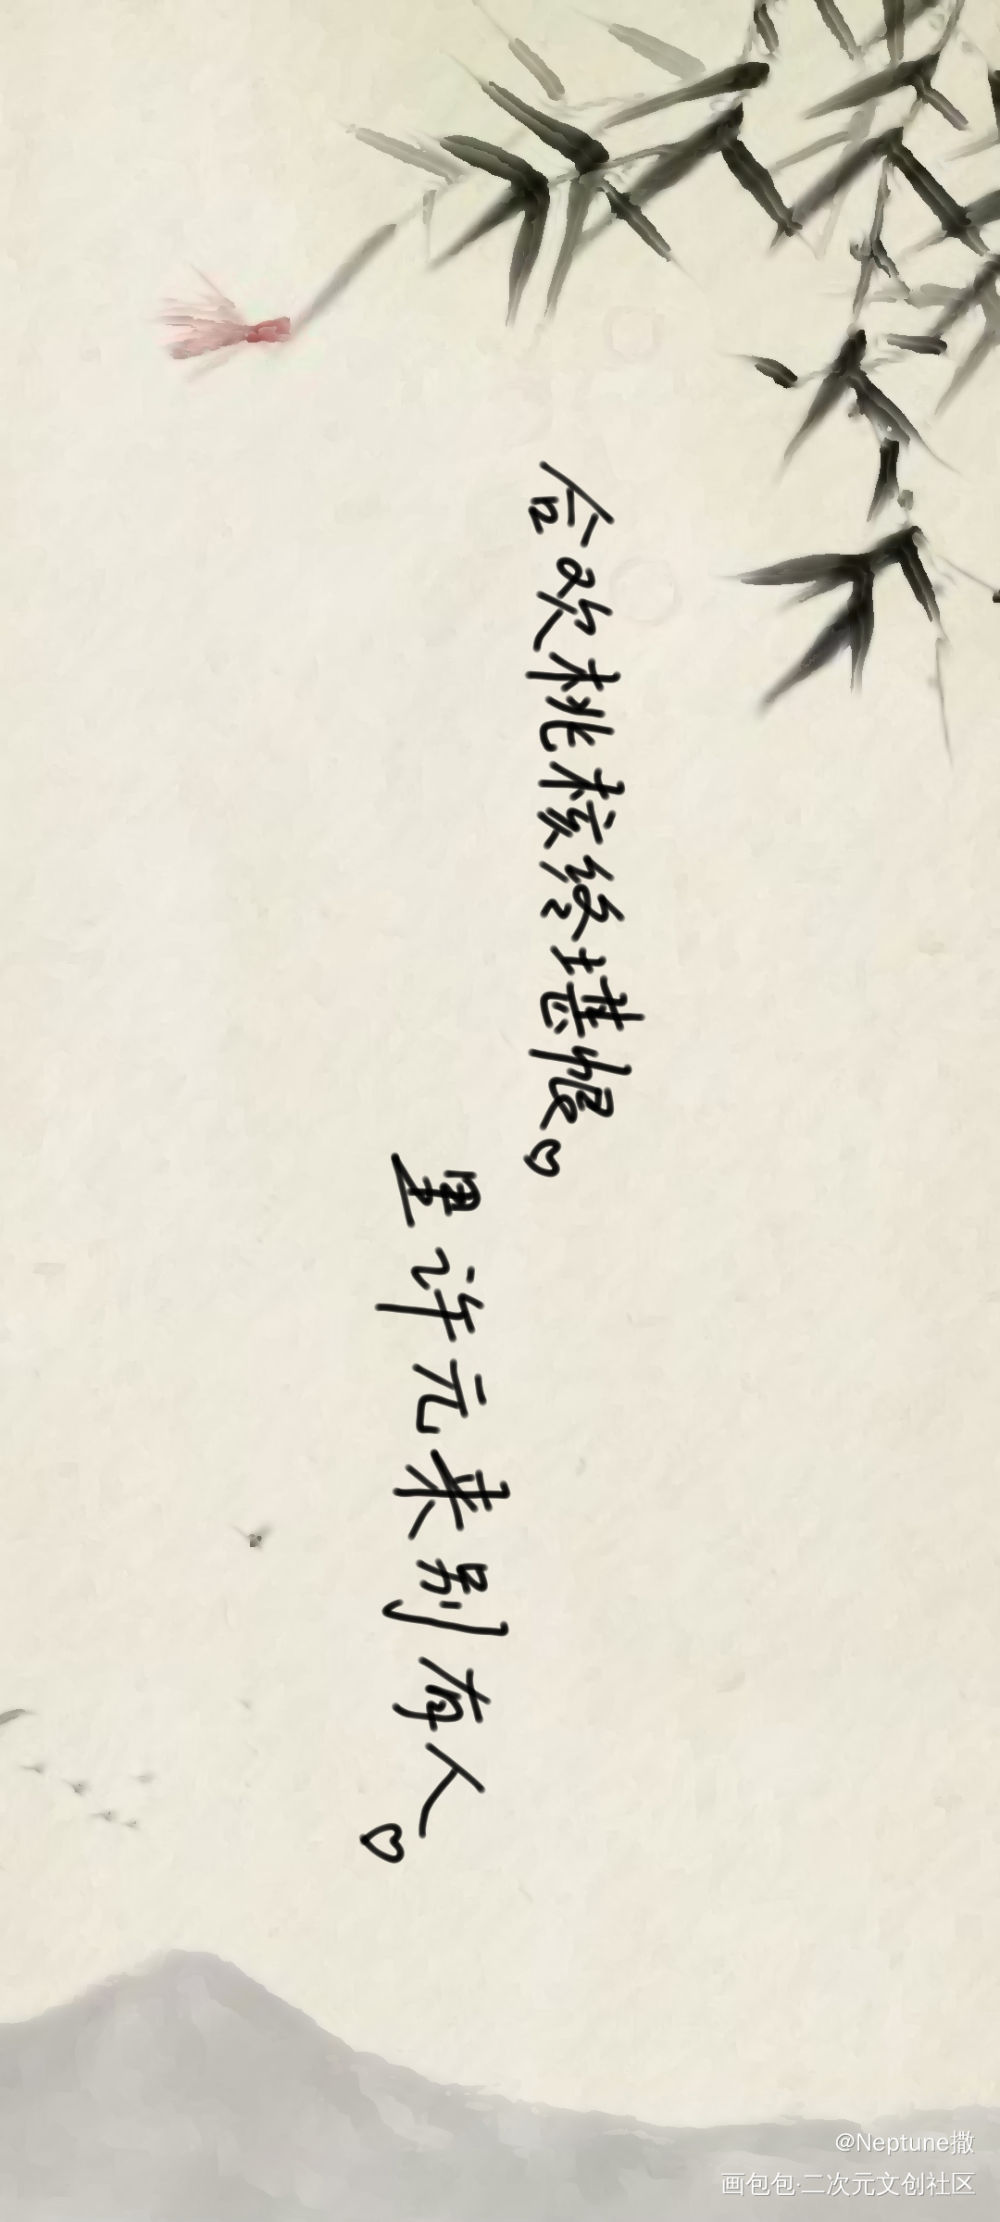 合欢桃核终堪恨♡
里许元来别有人♡
@Neptune撒
画包包·二次元文创社区